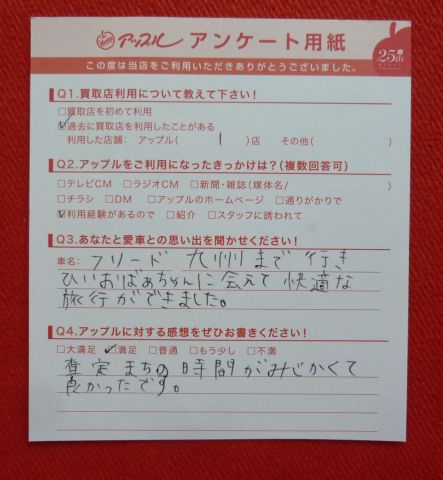 アップル アンケート用紙
25th
この度は当店をご利用いただきありがとうございました。
Q1.買取店利用について教えて下さい！
□買取店を初めて利用
☑過去に買取店を利用したことがある
利用した店舗： アップル（ 1 ）店 その他（ ）
Q2.アップルをご利用になったきっかけは？（複数回答可）
□テレビCM □ラジオCM □新聞・雑誌（媒体名/ ）
□チラシ □DM □アップルのホームページ □通りがかりで
☑利用経験があるので □紹介 □スタッフに誘われて
Q3.あなたと愛車との思い出を聞かせください！
車名： フリード 九州まで行き
ひいおばぁちゃんに会えて快適な
旅行ができました。
Q4.アップルに対する感想をぜひお書きください！
□大満足 ☑満足 □普通 □もう少し □不満
査定まちの時間がみじかくて
良かったです。